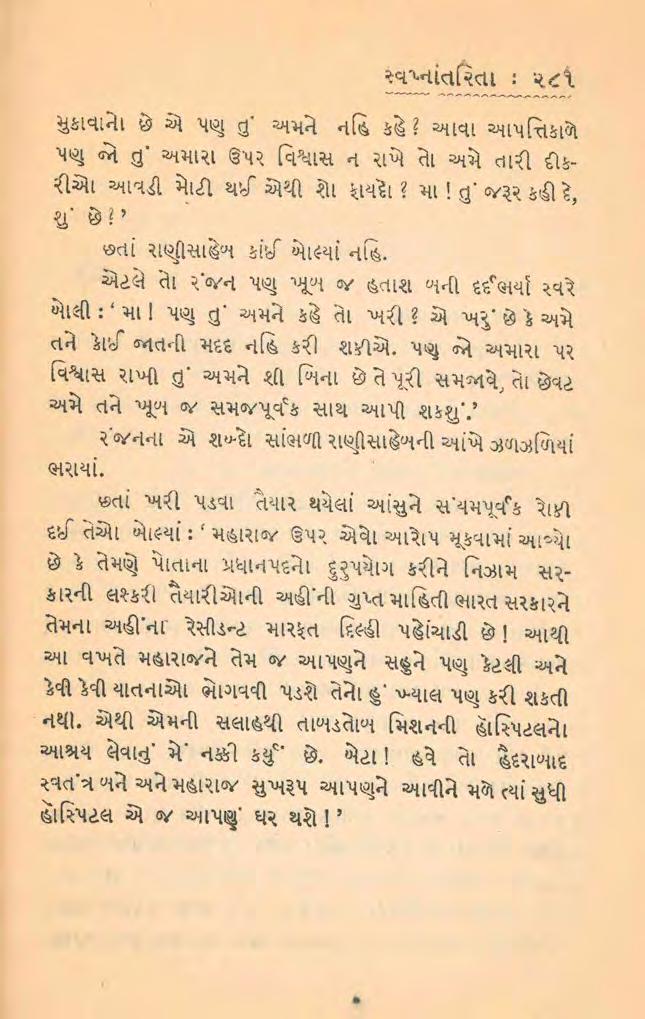 સ્વપ્નાંતરિતા : ૨૮૧
મુકાવાનો છે એ પણ તું અમને નહિ કહે? આવા આપત્તિકાળે
પણ જો તું અમારા ઉપર વિશ્વાસ ન રાખે તો અમે તારી દીક-
રીઓ આવડી મોટી થઈ એથી શો ફાયદો? મા! તું જરૂર કહી દે,
શું છે?’
છતાં રાણીસાહેબ કાંઈ બોલ્યાં નહિ.
એટલે તો રંજન પણ ખૂબ જ હતાશ બની દર્દભર્યા સ્વરે
બોલી : ‘મા! પણ તું અમને કહે તો ખરી? એ ખરું છે કે અમે
તને કોઈ જાતની મદદ નહિ કરી શકીએ. પણ જો અમારા પર
વિશ્વાસ રાખી તું અમને શી બિના છે તે પૂરી સમજાવે, તો છેવટ
અમે તને ખૂબ જ સમજપૂર્વક સાથ આપી શકશું.’
રંજનના એ શબ્દો સાંભળી રાણીસાહેબની આંખે ઝળઝળિયાં
ભરાયાં.
છતાં ખરી પડવા તૈયાર થયેલાં આંસુને સંયમપૂર્વક રોકી
દઈ તેઓ બોલ્યાં : ‘મહારાજ ઉપર એવો આરોપ મૂકવામાં આવ્યો
છે કે તેમણે પોતાના પ્રધાનપદનો દુરુપયોગ કરીને નિઝામ સર-
કારની લશ્કરી તૈયારીઓની અહીંની ગુપ્ત માહિતી ભારત સરકારને
તેમના અહીંના રેસીડન્ટ મારફત દિલ્હી પહોંચાડી છે! આથી
આ વખતે મહારાજને તેમ જ આપણને સહુને પણ કેટલી અને
કેવી કેવી યાતનાઓ ભોગવવી પડશે તેનો હું ખ્યાલ પણ કરી શકતી
નથી. એથી એમની સલાહથી તાબડતોબ મિશનની હૉસ્પિટલનો
આશ્રય લેવાનું મેં નક્કી કર્યું છે. બેટા! હવે તો હૈદરાબાદ
સ્વતંત્ર બને અને મહારાજ સુખરૂપ આપણને આવીને મળે ત્યાં સુધી
હૉસ્પિટલ એ જ આપણું ઘર થશે!’